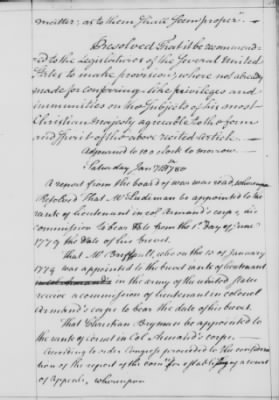 matter; as to them shall seem proper.
Resolved That it be recommend-
ed to the Legislatures of the several United
States to make provision, where not already
made for conferring like privileges and
immunities on the Subjects of his most
Christian Majesty agreeable to the form
and spirit of the above recited article.
Adjourned to 10 o Clock to morrow.
Saturday Jany 1780
A report from the board of war was read, whereupon
Resolved That Mr Ludeman be appointed to the
rank of lieutenant in col Armand's corps, his
commission to bear date from the 1st Day of June
1779 the Date of his brevet.
That Mr Briffault, who on the 10 of January
1779 was appointed to the brevet rank of lieutenant
in the army of the united states
receive a commission of lieutenant in colonel
Armand's corps to bear the date of his brevet.
That Christian Bryman be appointed to
the rank of cornet in Col Armand's corps.
According to order Congress proceeded to the consideration
tion of the report of the comee for establishing a court
of Appeals, whereupon